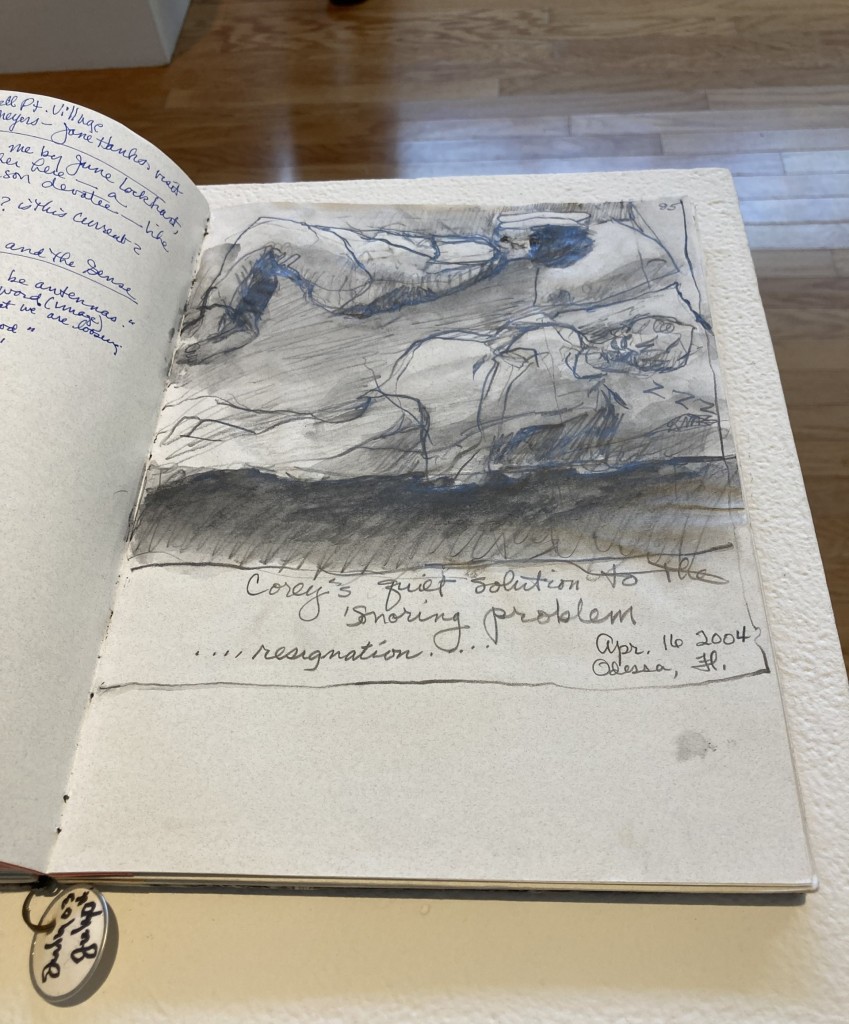 Pt. Village
Jane Hanhos visit
me by June Lockhart,
her here — a
devotee — like
? is this current?
and the Sense
be antennas."
word (image)
t we are loosing
"
95
Corey's quiet solution to the
snoring problem
.... resignation. ...
Apr. 16 2004
Odessa, Fl.